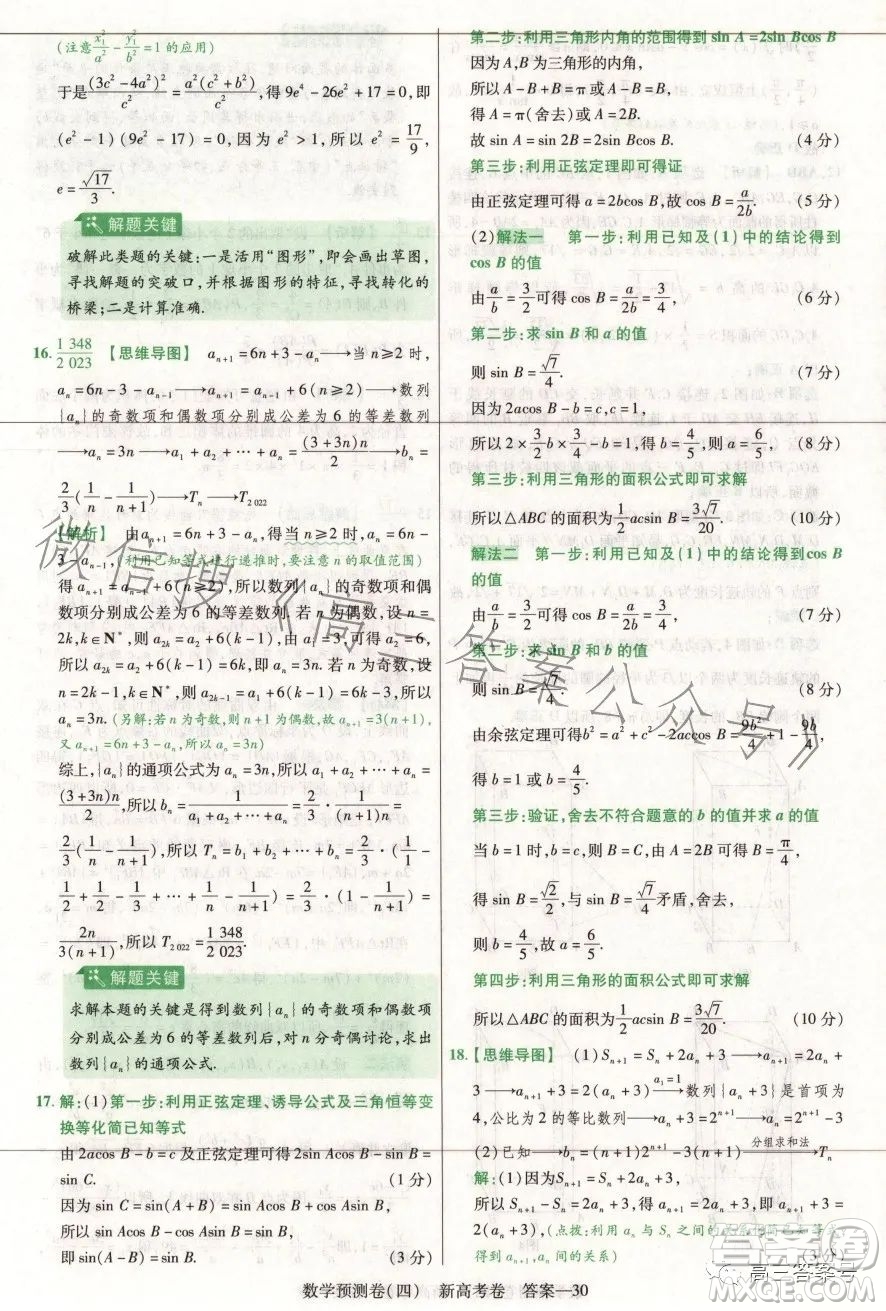 (注意x₁²/a² - y₁²/b² = 1 的应用)
于是(3c² - 4a²)²/c² = a²(c² + b²)/c²,得 9e⁴ - 26e² + 17 = 0,即
(e² - 1)(9e² - 17) = 0,因为 e² > 1,所以 e² = 17/9,
e = √17/3.
解题关键
破解此类题的关键:一是活用“图形”,即会画出草图,
寻找解题的突破口,并根据图形的特征,寻找转化的
桥梁;二是计算准确.
16. 1 348/2 023 【思维导图】 aₙ₊₁ = 6n + 3 - aₙ ⟶ 当 n ≥ 2 时,
aₙ = 6n - 3 - aₙ₋₁ ⟶ aₙ₊₁ = aₙ₋₁ + 6(n ≥ 2) ⟶ 数列
{aₙ}的奇数项和偶数项分别成公差为 6 的等差数列
⟶ aₙ = 3n ⟶ a₁ + a₂ + ⋯ + aₙ = (3 + 3n)n/2 ⟶ bₙ =
2/3(1/n - 1/(n+1)) ⟶ Tₙ ⟶ T₂ ₀₂₂
【解析】 由 aₙ₊₁ = 6n + 3 - aₙ,得当 n ≥ 2 时,aₙ = 6n - 3 - aₙ₋₁,
(利用已知等式进行递推时,要注意 n 的取值范围)
得 aₙ₊₁ = aₙ₋₁ + 6(n ≥ 2),所以数列{aₙ}的奇数项和偶
数项分别成公差为 6 的等差数列.若 n 为偶数,设 n =
2k,k∈N*,则 a₂ₖ = a₂ + 6(k - 1),由已知得 a₂ = 6,
所以 a₂ₖ = 6k,所以 aₙ = 3n.若 n 为奇数,设
n = 2k - 1,k∈N*,则 a₂ₖ₋₁ = a₁ + 6(k - 1) = 6k - 3,所以
aₙ = 3n. (另解:若 n 为奇数,则 n + 1 为偶数,故 aₙ₊₁ = 3(n + 1),
又 aₙ₊₁ = 6n + 3 - aₙ,所以 aₙ = 3n)
综上,{aₙ}的通项公式为 aₙ = 3n,所以 a₁ + a₂ + ⋯ + aₙ =
(3 + 3n)n/2,所以 bₙ = n/(a₁ + a₂ + ⋯ + aₙ) = 2/3 · 1/((n + 1)n) =
2/3(1/n - 1/(n+1)),所以 Tₙ = b₁ + b₂ + ⋯ + bₙ = 2/3(1 -
1/2 + 1/2 - 1/3 + ⋯ + 1/n - 1/(n+1)) = 2/3(1 - 1/(n+1)) =
2n/3(n+1),所以 T₂ ₀₂₂ = 1 348/2 023.
解题关键
求解本题的关键是得到数列{aₙ}的奇数项和偶数项
分别成公差为 6 的等差数列后,对 n 分奇偶讨论,求出
数列{aₙ}的通项公式.
17. 解:(1)第一步:利用正弦定理、诱导公式及三角恒等变
换等化简已知等式
由 2acos B - b = c 及正弦定理可得 2sin Acos B - sin B =
sin C. (1 分)
因为 sin C = sin(A + B) = sin Acos B + cos Asin B,
所以 sin Acos B - cos Asin B = sin B,
即 sin(A - B) = sin B. (3 分)
第二步:利用三角形内角的范围得到 sin A = 2sin Bcos B
因为 A,B 为三角形的内角,
所以 A - B + B = π 或 A - B = B,
得 A = π(舍去)或 A = 2B.
故 sin A = sin 2B = 2sin Bcos B. (4 分)
第三步:利用正弦定理即可得证
由正弦定理可得 a = 2bcos B,故 cos B = a/2b. (5 分)
(2)解法一 第一步:利用已知及(1)中的结论得到
cos B 的值
由 a/b = 3/2 可得 cos B = a/2b = 3/4, (6 分)
第二步:求 sin B 和 a 的值
则 sin B = √7/4. (7 分)
因为 2acos B - b = c,c = 1,
所以 2 × 3/2 b × 3/4 - b = 1,得 b = 4/5,故 a = 6/5, (8 分)
第三步:利用三角形的面积公式即可求解
所以△ABC 的面积为 1/2 acsin B = 3√7/20. (10 分)
解法二 第一步:利用已知及(1)中的结论得到 cos B
的值
由 a/b = 3/2 可得 cos B = a/2b = 3/4, (7 分)
第二步:求 sin B 和 b 的值
则 sin B = √7/4. (8 分)
由余弦定理可得 b² = a² + c² - 2accos B = 9b²/4 + 1 - 9b/4,
得 b = 1 或 b = 4/5.
第三步:验证,舍去不符合题意的 b 的值并求 a 的值
当 b = 1 时,b = c,所以 B = C,由 A = 2B 可得 B = π/4,
得 sin B = √2/2,与 sin B = √7/4 矛盾,舍去.
则 b = 4/5,故 a = 6/5.
第四步:利用三角形的面积公式即可求解
所以△ABC 的面积为 1/2 acsin B = 3√7/20. (10 分)
18. 【思维导图】 (1)Sₙ₊₁ = Sₙ + 2aₙ + 3 ⟶ aₙ₊₁ = 2aₙ +
3 ⟶ aₙ₊₁ + 3 = 2(aₙ + 3) ⟶(a₁=1) 数列{aₙ + 3}是首项为
4,公比为 2 的等比数列 ⟶ aₙ + 3 = 2ⁿ⁺¹ ⟶ aₙ = 2ⁿ⁺¹ - 3
(2)已知 ⟶ bₙ = (n + 1)2ⁿ⁺¹ - 3(n + 1) ⟶(分组求和法) Tₙ
解:(1)因为 Sₙ₊₁ = Sₙ + 2aₙ + 3,
所以 Sₙ₊₁ - Sₙ = 2aₙ + 3,得 aₙ₊₁ = 2aₙ + 3,即 aₙ₊₁ + 3 =
2(aₙ + 3), (点拨:利用 aₙ 与 Sₙ 之间的关系简化已知等式
得到 aₙ₊₁,aₙ 间的关系) (3 分)
数学预测卷(四) 新高考卷 答案—30
微信搜《高三答案公众号》
答案圈
高三答案号